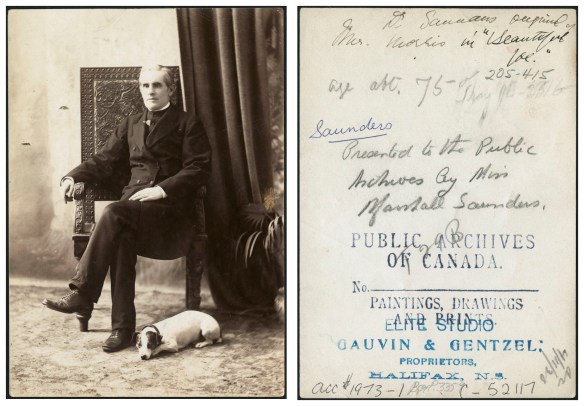 Dr Saunders original of
Mr. Morris in "Beautiful
Joe."
205-415
age abt. 75
Saunders
Presented to the Public
Archives by Miss
Marshall Saunders.
PUBLIC ARCHIVES
OF CANADA.
No.
PAINTINGS, DRAWINGS
AND PRINTS.
ELITE STUDIO
GAUVIN & GENTZEL,
PROPRIETORS,
HALIFAX, N.S.
acc # 1973-1 C-52117